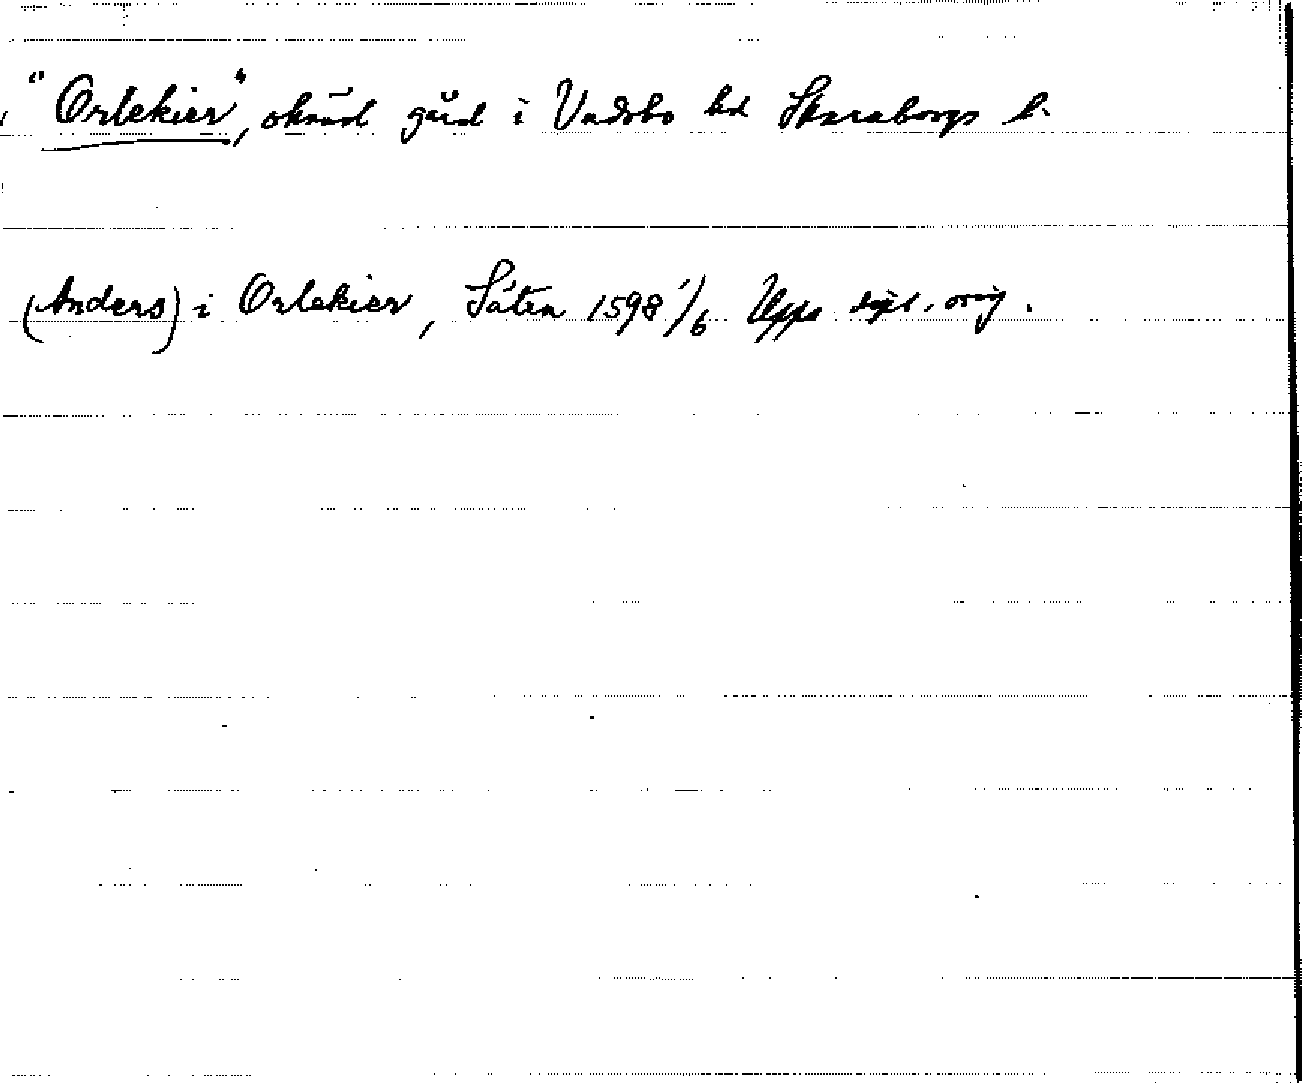 "Orlekier", okänd gård i Vadsbo hd Skaraborgs l.
(Anders) i Orlekier, Såten 1598 1/6 Upps dipl. orig.